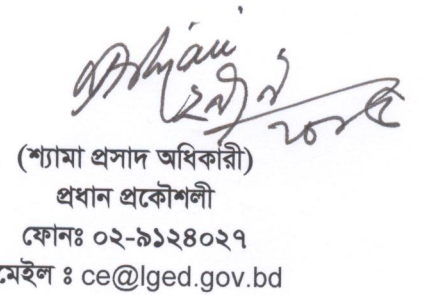 (শ্যামা প্রসাদ অধিকারী)
প্রধান প্রকৌশলী
ফোনঃ ০২-৯১২৪০২৭
মেইল ঃ ce@lged.gov.bd